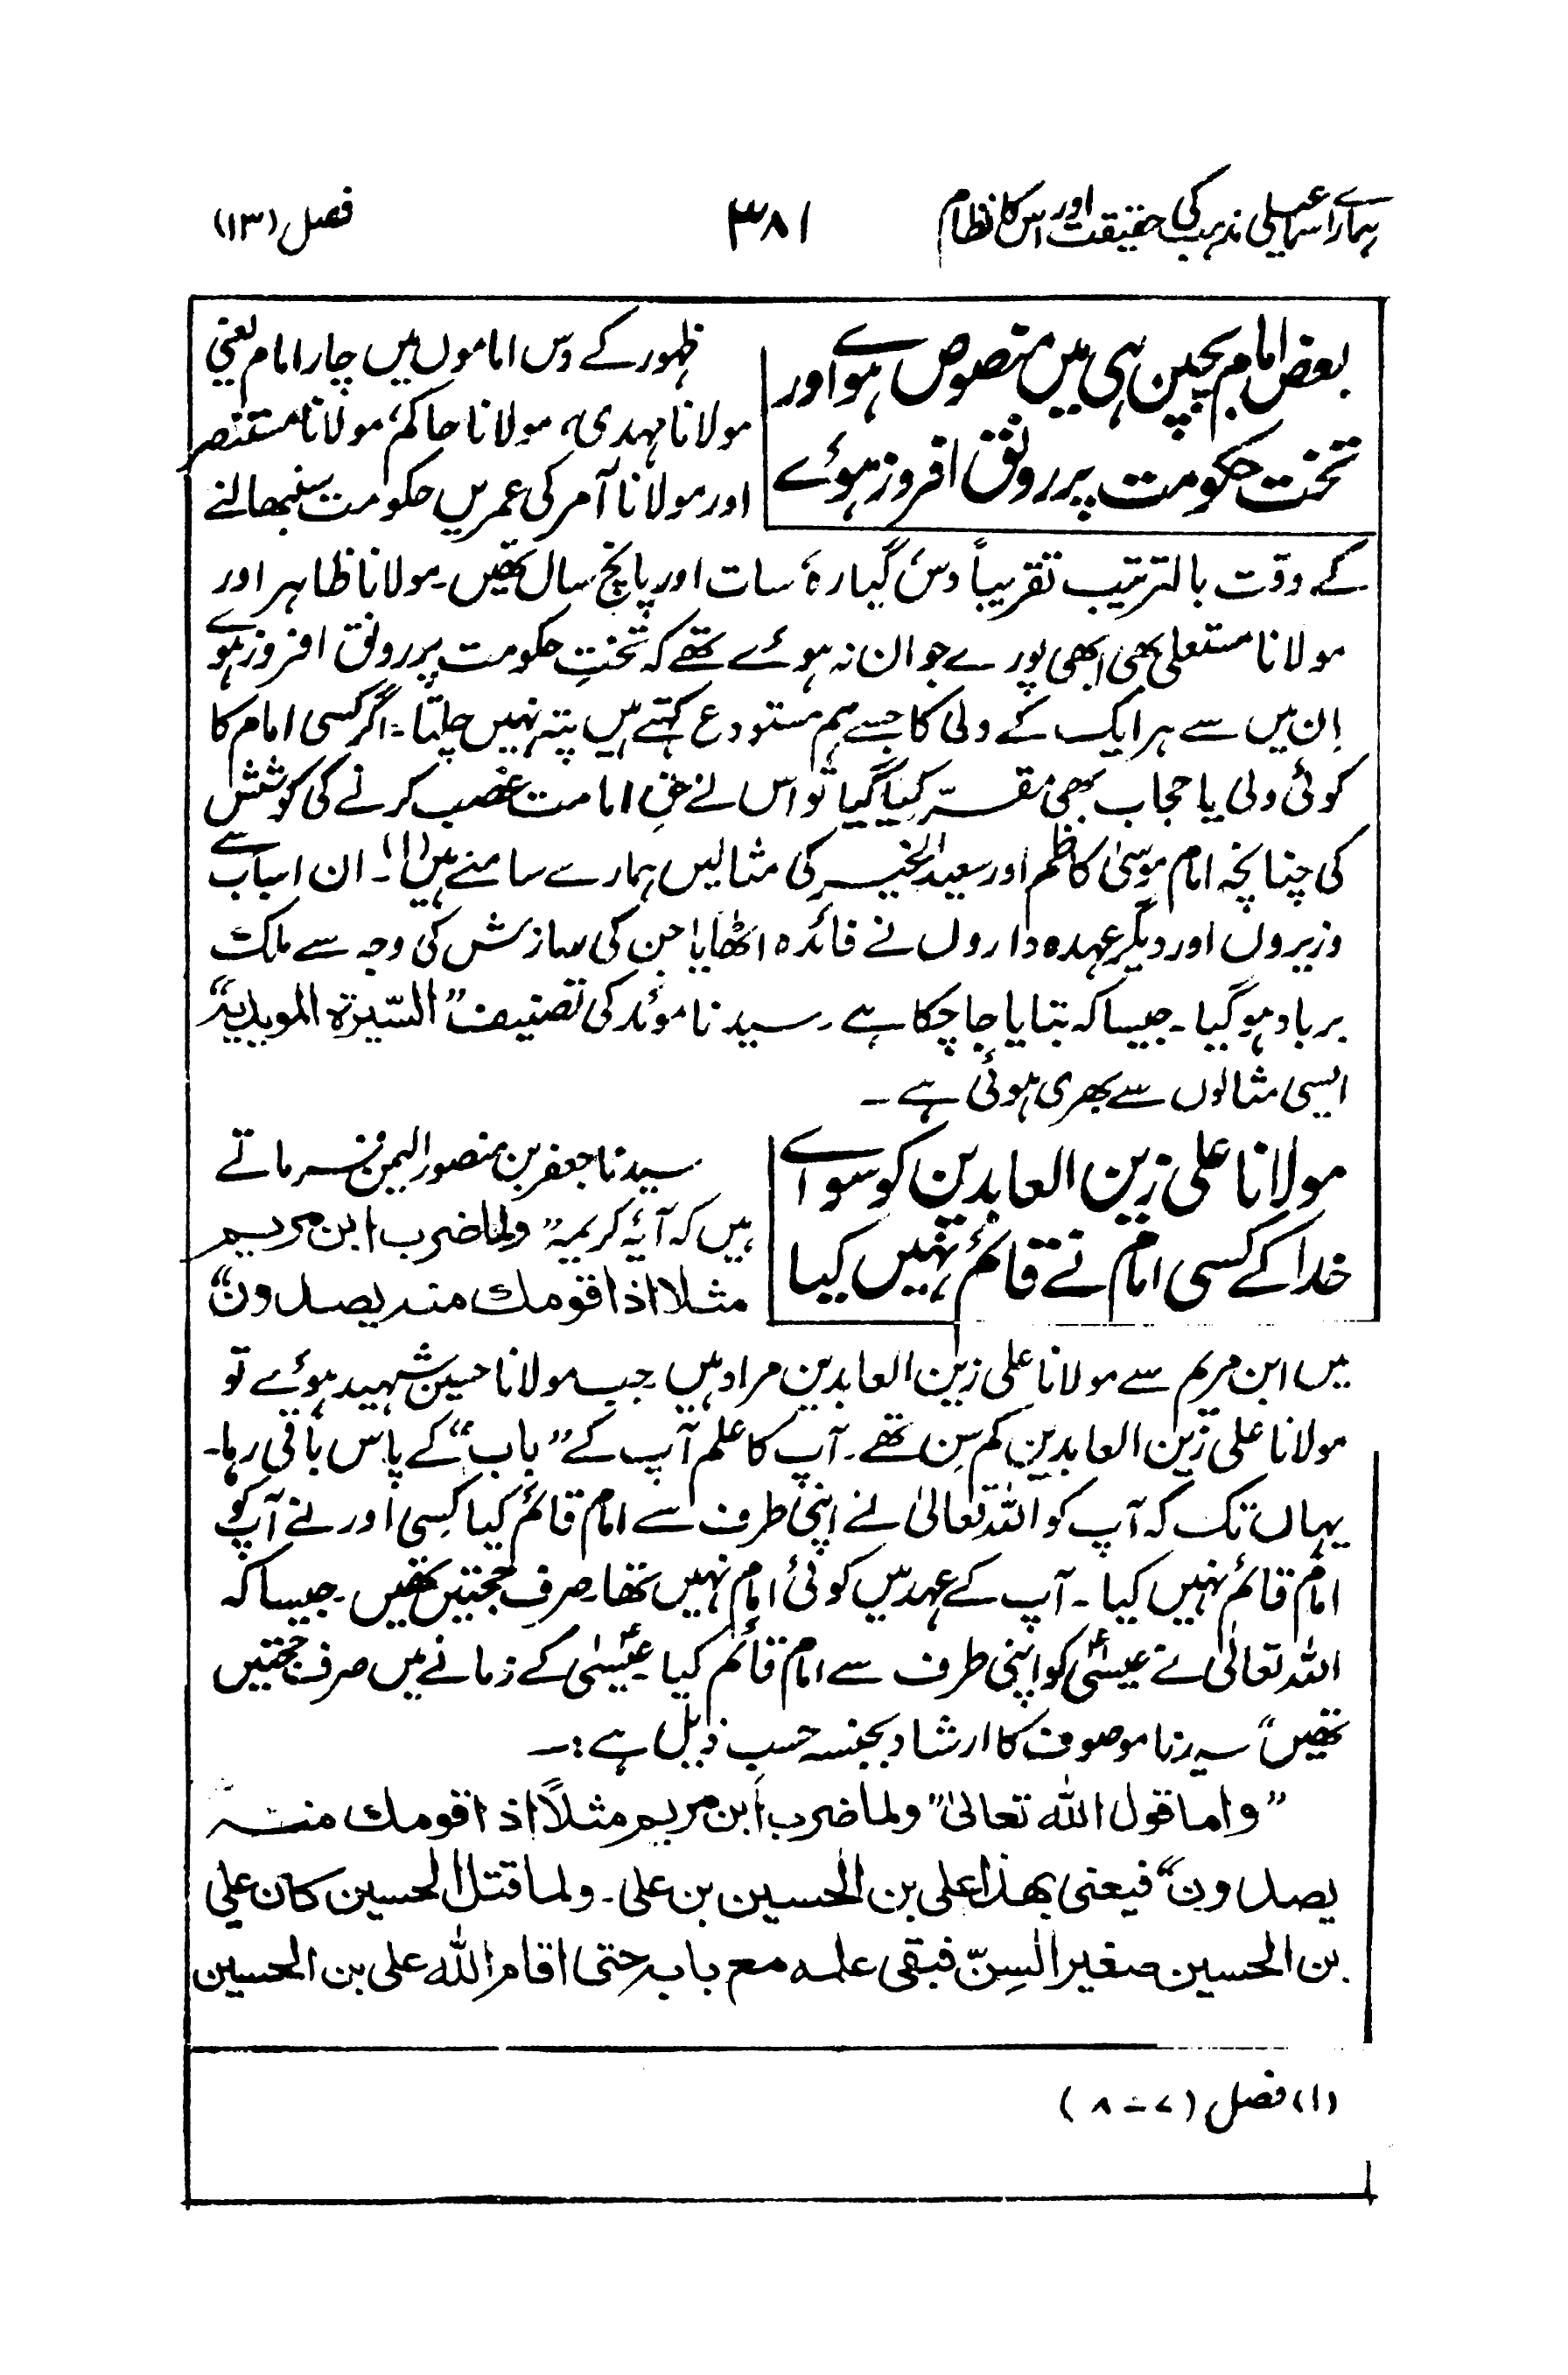 ہمارے اسماعیلی مذہب کی حقیقت اور اس کا نظام
۳۸۱
فصل (۱۳)
بعض امام بچپن ہی میں منصوص ہوے اور
تخت حکومت پر رونق افروز ہوئے
ظہور کے دس اماموں میں چار امام یعنی
مولانا مہدی، مولانا حاکم، مولانا مستنصر
اور مولانا آمر کی عمریں حکومت سنبھالنے
کے وقت بالترتیب تقریباً دس، گیارہ، سات اور پانچ سال تھیں۔ مولانا ظاہر اور
مولانا مستعلی بھی ابھی پورے جوان نہ ہوئے تھے کہ تختِ حکومت پر رونق افروز ہوے
اِن میں سے ہر ایک کے ولی کا جسے ہم مستودع کہتے ہیں پتہ نہیں چلتا۔ اگر کسی امام کا
کوئی ولی یا حجاب بھی مقرّر کیا گیا تو اس نے حقِ امامت غصب کرنے کی کوشش
کی چنانچہ امام موسیٰ کاظم اور سعید الخیر کی مثالیں ہمارے سامنے ہیں (۱)۔ ان اسباب سے
وزیروں اور دیگر عہدہ داروں نے فائدہ اٹھایا جن کی سازش کی وجہ سے ملک
برباد ہو گیا۔ جیسا کہ بتایا جا چکا ہے۔ سیدنا موئد کی تصنیف ”السّیرۃ المویدیہ“
ایسی مثالوں سے بھری ہوئی ہے۔
مولانا علی زین العابدین کو سواے
خدا کے کسی امام نے قائم نہیں کیا
سیدنا جعفر بن منصور الیمن فرماتے
ہیں کہ آیۂ کریمہ ”ولما ضرب ابن مریم
مثلا اذا قومك منه یصدون“
میں ابن مریم سے مولانا علی زین العابدین مراد ہیں۔ جب مولانا حسین شہید ہوئے تو
مولانا علی زین العابدین کم سِن تھے۔ آپ کا علم آپ کے ”باب“ کے پاس باقی رہا۔
یہاں تک کہ آپ کو اللہ تعالیٰ نے اپنی طرف سے امام قائم کیا کسی اور نے آپ کو
امام قائم نہیں کیا۔ آپ کے عہد میں کوئی امام نہیں تھا۔ صرف حجتیں تھیں۔ جیسا کہ
اللہ تعالیٰ نے عیسیٰؑ کو اپنی طرف سے امام قائم کیا عیسیٰؑ کے زمانے میں صرف حجتیں
تھیں“ سیدنا موصوف کا ارشاد بجنسہ حسبِ ذیل ہے:۔
”واما قول الله تعالیٰ ”ولما ضرب ابن مریم مثلاً اذا قومك منه
یصدون“ فیعنی بھذا علی بن الحسین بن علی۔ ولما قتل الحسین کان علی
بن الحسین صغیر السِنّ فبقی علمه مع بابه حتی اقام الله علی بن الحسین
(۱) فصل (۷ – ۸)